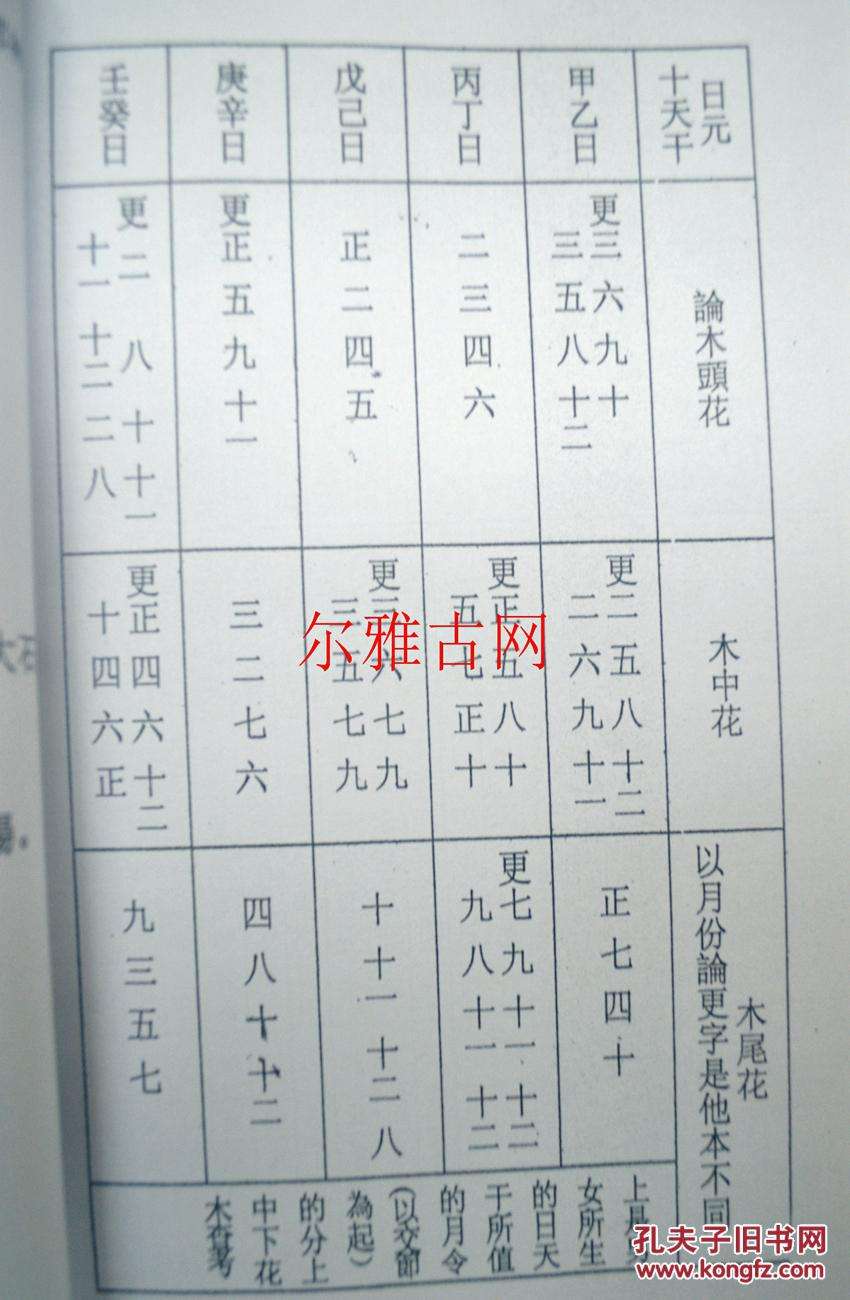 日元
十天干
論木頭花
木中花
木尾花
以月份論更字是他本不同
甲乙日
更三六九十
三五八十二
更二五八十二
二六九十一
正七四十
丙丁日
二三四六
更正五八十
五七正十
更七九十一十二
九八十一十二
戊己日
正二四五
更三六七九
三五七九
十十一十二八
庚辛日
更正五九十一
三二七六
四八十十二
壬癸日
更二八十十一
十一十二二八
更正四六十二
十四六正
九三五七
上是
女所生
的日天
干所值
的月令
(以交節
為起)
的分上
中下花
木查考
尔雅古网
孔夫子旧书网
www.kongfz.com